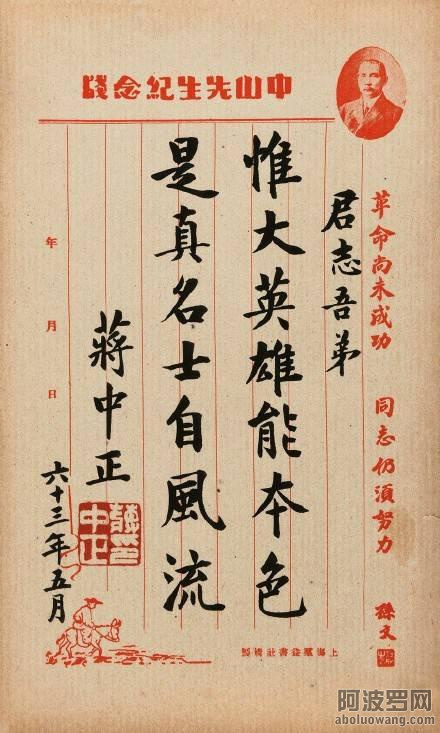 中山先生紀念牋
革命尚未成功 同志仍須努力
孫文
君志吾弟
惟大英雄能本色
是真名士自風流
蔣中正
蔣中正印
年 月 日
六十三年五月
上海 書社 製
阿波罗网
aboluowang.com